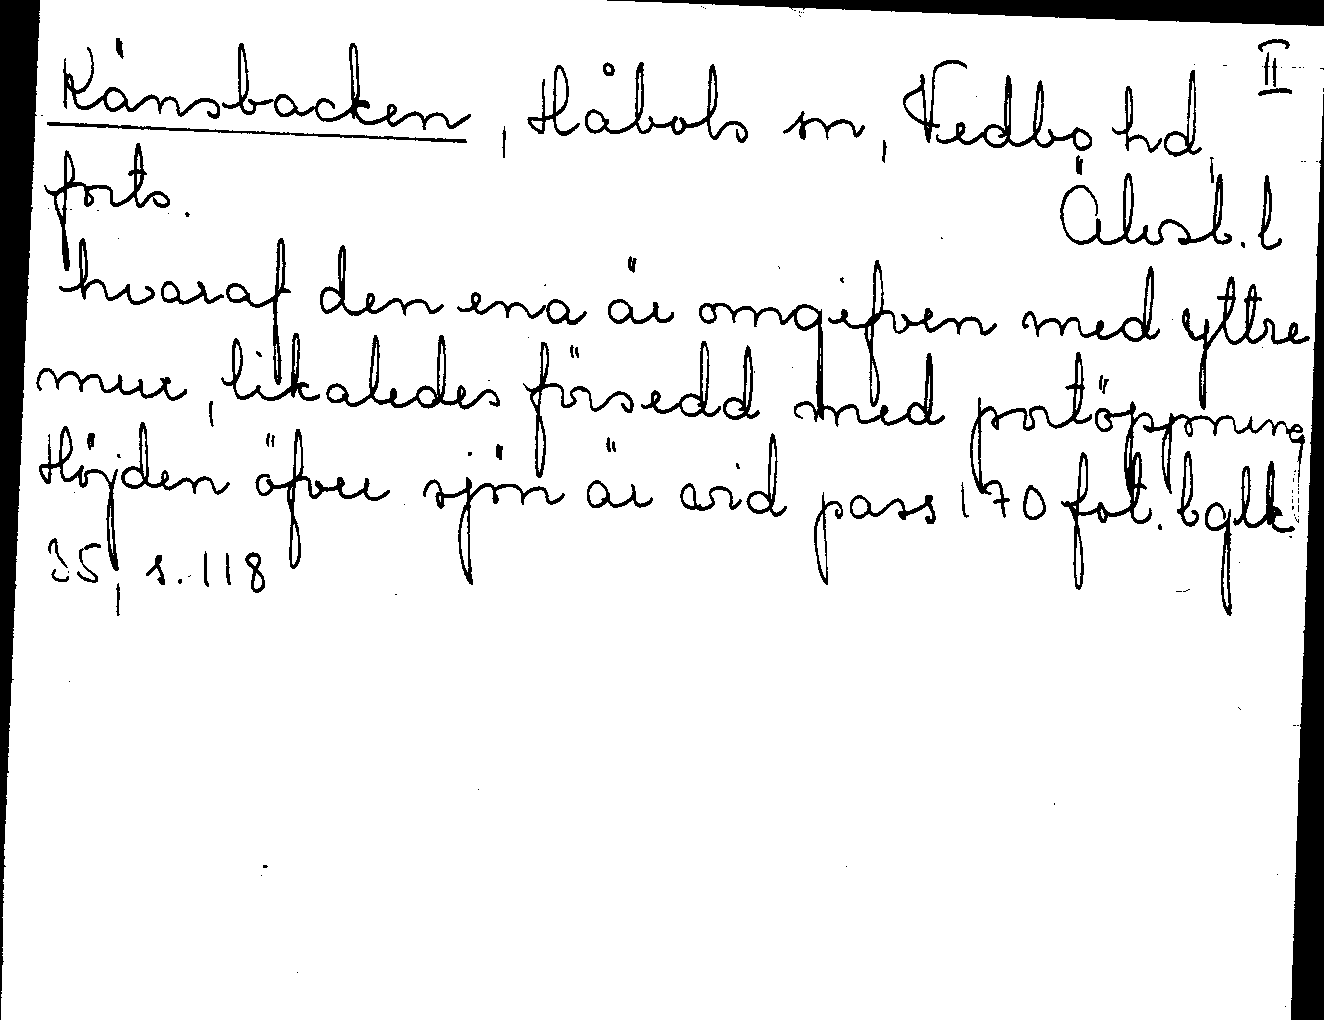 II
Känsbacken, Håbols sn, Vedbo hd,
forts. Älvsb. l
hvaraf den ena är omgifven med yttre
mur, likaledes försedd med portöppning
Höjden öfver sjön är vid pass 170 fot.
35, s. 118